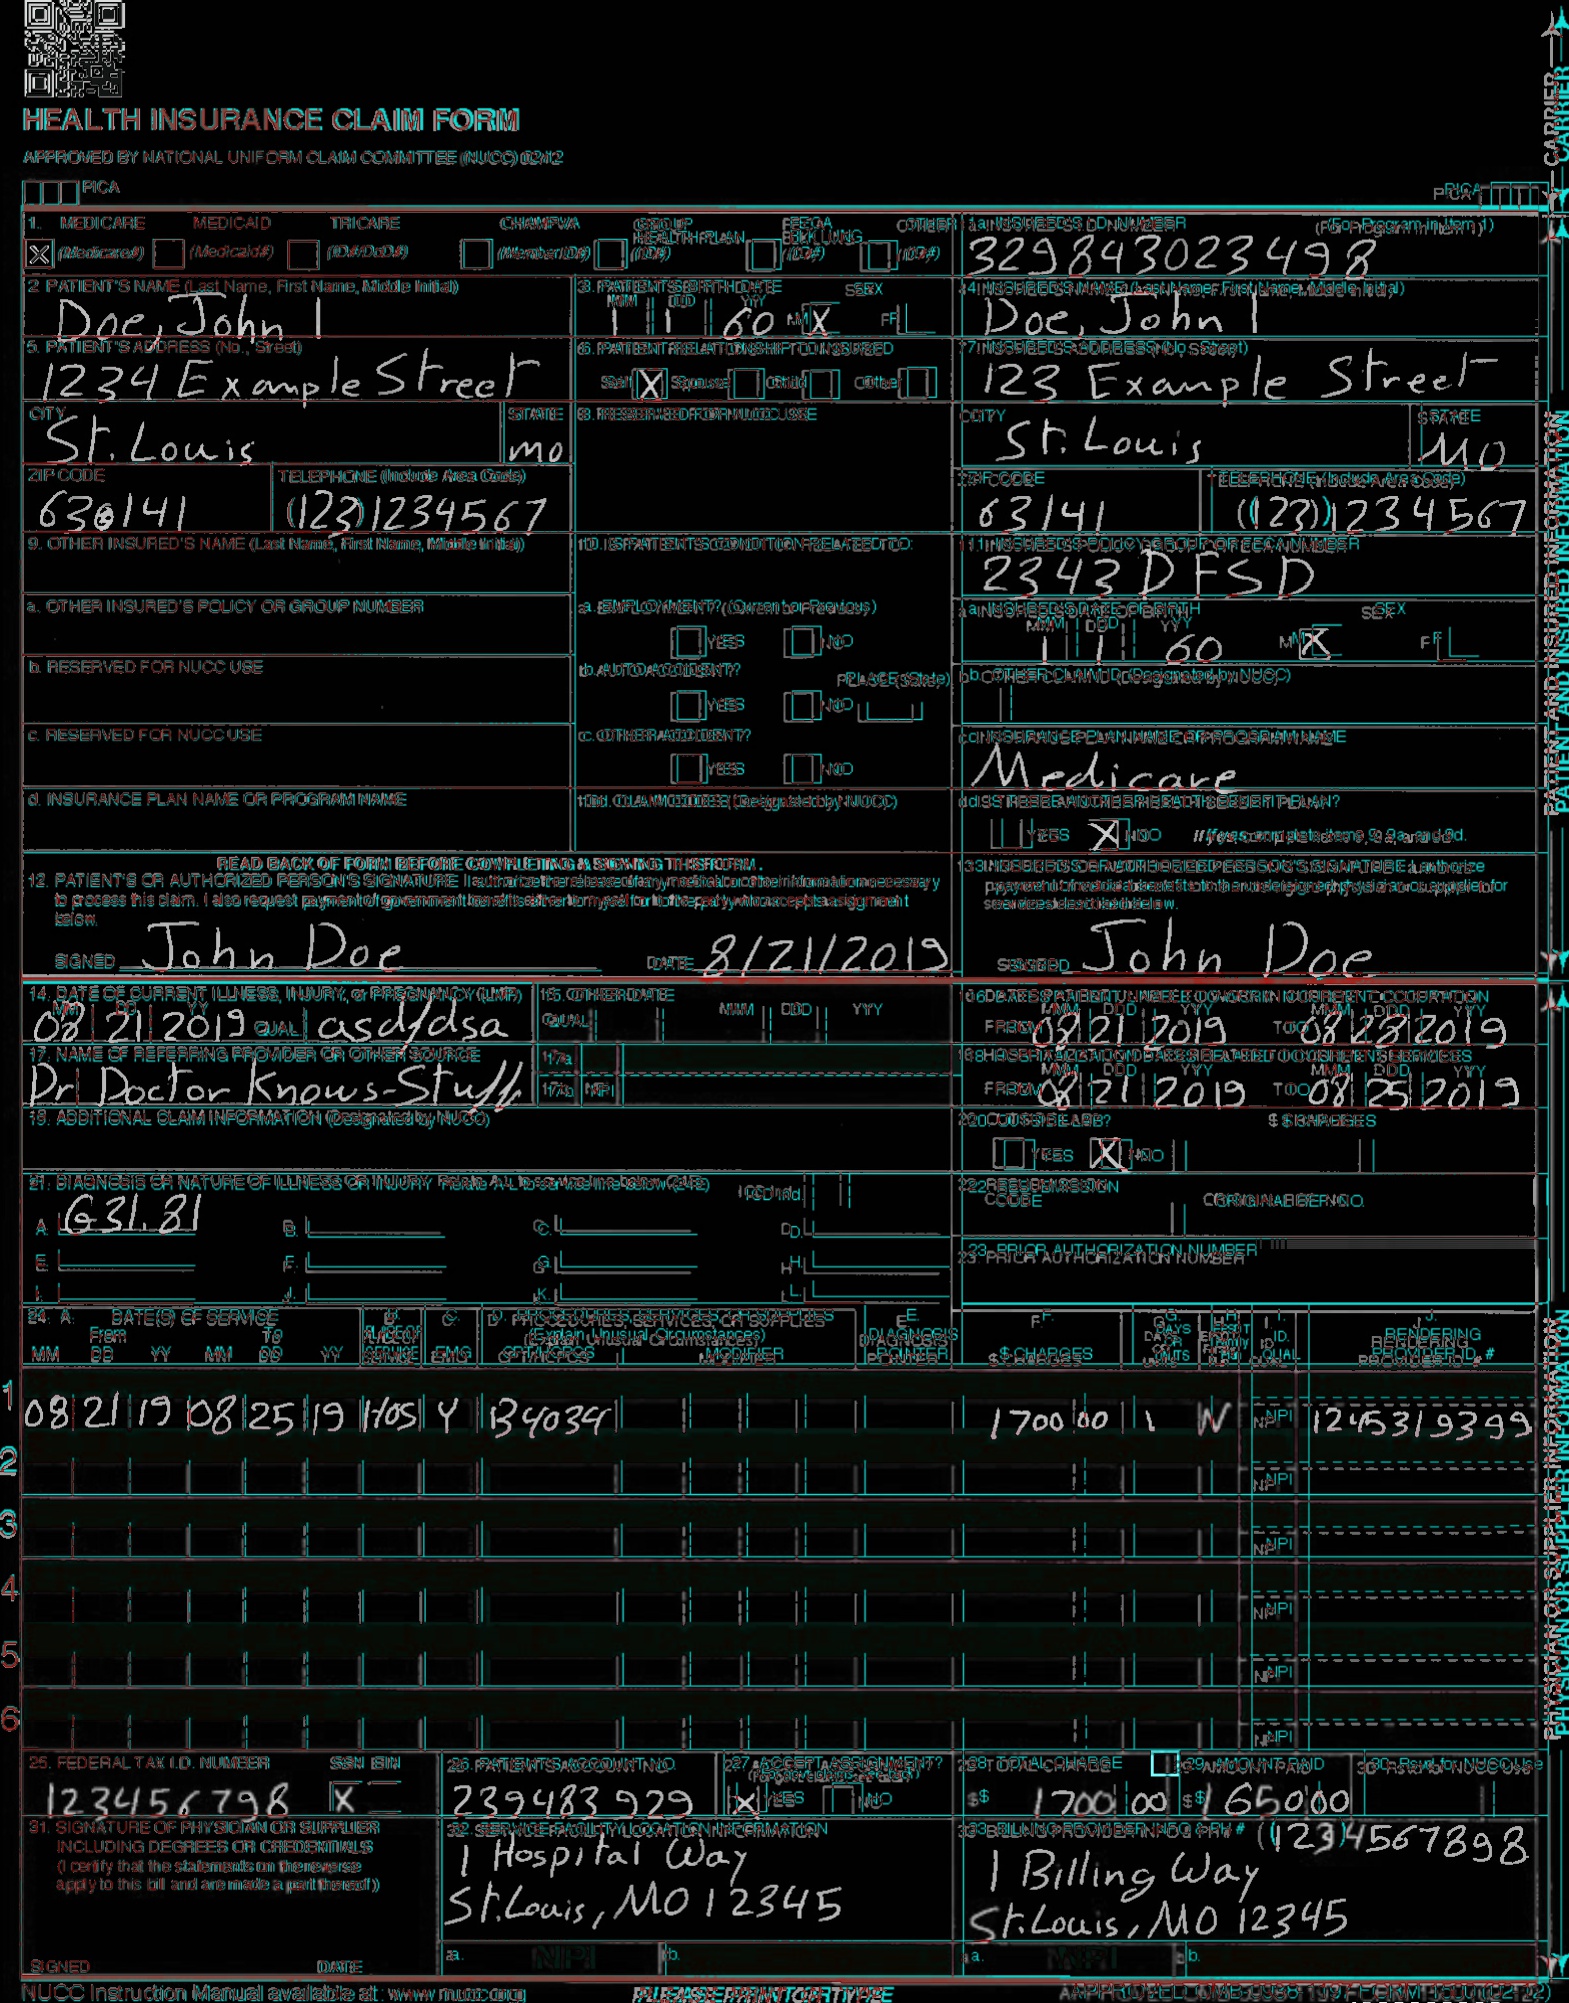 HEALTH INSURANCE CLAIM FORM
APPROVED BY NATIONAL UNIFORM CLAIM COMMITTEE (NUCC) 02/12
PICA
PICA
CARRIER
1. MEDICARE MEDICAID TRICARE CHAMPVA GROUP HEALTH PLAN FECA BLK LUNG OTHER
X (Medicare#) (Medicaid#) (ID#/DoD#) (Member ID#) (ID#) (ID#) (ID#)
1a. INSURED'S I.D. NUMBER (For Program in Item 1)
329843023498
2. PATIENT'S NAME (Last Name, First Name, Middle Initial)
Doe, John I
3. PATIENT'S BIRTH DATE SEX
MM DD YY
1 1 60 M X F
4. INSURED'S NAME (Last Name, First Name, Middle Initial)
Doe, John I
5. PATIENT'S ADDRESS (No., Street)
1234 Example Street
6. PATIENT RELATIONSHIP TO INSURED
Self X Spouse Child Other
7. INSURED'S ADDRESS (No., Street)
123 Example Street
CITY
St. Louis
STATE
MO
8. RESERVED FOR NUCC USE
CITY
St. Louis
STATE
MO
ZIP CODE
630141
TELEPHONE (Include Area Code)
(123)1234567
ZIP CODE
63141
TELEPHONE (Include Area Code)
(123)1234567
9. OTHER INSURED'S NAME (Last Name, First Name, Middle Initial)
10. IS PATIENT'S CONDITION RELATED TO:
11. INSURED'S POLICY GROUP OR FECA NUMBER
2343DFSD
a. OTHER INSURED'S POLICY OR GROUP NUMBER
a. EMPLOYMENT? (Current or Previous)
YES NO
a. INSURED'S DATE OF BIRTH SEX
MM DD YY
1 1 60 M X F
b. RESERVED FOR NUCC USE
b. AUTO ACCIDENT? PLACE (State)
YES NO
b. OTHER CLAIM ID (Designated by NUCC)
c. RESERVED FOR NUCC USE
c. OTHER ACCIDENT?
YES NO
c. INSURANCE PLAN NAME OR PROGRAM NAME
Medicare
d. INSURANCE PLAN NAME OR PROGRAM NAME
10d. CLAIM CODES (Designated by NUCC)
d. IS THERE ANOTHER HEALTH BENEFIT PLAN?
YES X NO If yes, complete items 9, 9a, and 9d.
READ BACK OF FORM BEFORE COMPLETING & SIGNING THIS FORM.
12. PATIENT'S OR AUTHORIZED PERSON'S SIGNATURE I authorize the release of any medical or other information necessary
to process this claim. I also request payment of government benefits either to myself or to the party who accepts assignment
below.
SIGNED John Doe DATE 8/21/2019
13. INSURED'S OR AUTHORIZED PERSON'S SIGNATURE I authorize
payment of medical benefits to the undersigned physician or supplier for
services described below.
SIGNED John Doe
PATIENT AND INSURED INFORMATION
14. DATE OF CURRENT ILLNESS, INJURY, or PREGNANCY (LMP)
MM DD YY
08 21 2019 QUAL. asd/dsa
15. OTHER DATE
QUAL. MM DD YY
16. DATES PATIENT UNABLE TO WORK IN CURRENT OCCUPATION
MM DD YY MM DD YY
FROM 08 21 2019 TO 08 23 2019
17. NAME OF REFERRING PROVIDER OR OTHER SOURCE
Dr Doctor Knows-Stuff
17a.
17b. NPI
18. HOSPITALIZATION DATES RELATED TO CURRENT SERVICES
MM DD YY MM DD YY
FROM 08 21 2019 TO 08 25 2019
19. ADDITIONAL CLAIM INFORMATION (Designated by NUCC)
20. OUTSIDE LAB? $ CHARGES
YES X NO
21. DIAGNOSIS OR NATURE OF ILLNESS OR INJURY Relate A-L to service line below (24E) ICD Ind.
A. G31.81 B. C. D.
E. F. G. H.
I. J. K. L.
22. RESUBMISSION
CODE ORIGINAL REF. NO.
23. PRIOR AUTHORIZATION NUMBER
24. A. DATE(S) OF SERVICE
From To
MM DD YY MM DD YY
B. PLACE OF SERVICE
C. EMG
D. PROCEDURES, SERVICES, OR SUPPLIES
(Explain Unusual Circumstances)
CPT/HCPCS MODIFIER
E. DIAGNOSIS POINTER
F. $ CHARGES
G. DAYS OR UNITS
H.
I. ID. QUAL.
J. RENDERING PROVIDER ID. #
1 08 21 19 08 25 19 HOS Y B4034 1700 00 1 N NPI 1245319399
2 NPI
3 NPI
4 NPI
5 NPI
6 NPI
PHYSICIAN OR SUPPLIER INFORMATION
25. FEDERAL TAX I.D. NUMBER SSN EIN
123456798 X
26. PATIENT'S ACCOUNT NO.
239483929
27. ACCEPT ASSIGNMENT?
(For govt. claims, see back)
X YES NO
28. TOTAL CHARGE
$ 1700 00
29. AMOUNT PAID
$ 1650 00
30. Rsvd for NUCC Use
31. SIGNATURE OF PHYSICIAN OR SUPPLIER
INCLUDING DEGREES OR CREDENTIALS
(I certify that the statements on the reverse
apply to this bill and are made a part thereof.)
SIGNED DATE
32. SERVICE FACILITY LOCATION INFORMATION
1 Hospital Way
St. Louis, MO 12345
a. NPI b.
33. BILLING PROVIDER INFO & PH # (123)4567898
1 Billing Way
St. Louis, MO 12345
a. NPI b.
NUCC Instruction Manual available at: www.nucc.org
PLEASE PRINT OR TYPE
APPROVED OMB-0938-1197 FORM 1500 (02-12)